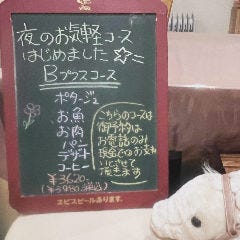 夜のお気軽コース
はじめました☆
Bプラスコース
ポタージュ
お魚
お肉
パン
デザート
コーヒー
¥3620-
こちらのコースは
御予約は
お電話のみ
現金でのお支払
いにさせて
頂きます
ヱビスビールあります。